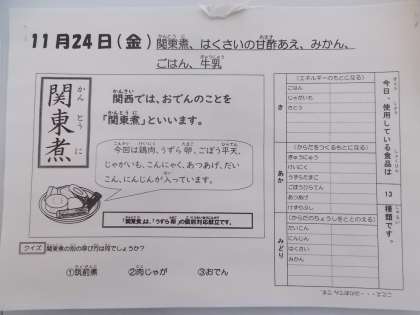 11月24日(金) 関東煮、はくさいの甘酢あえ、みかん、
ごはん、牛乳
関東煮
かんとうに
関西では、おでんのことを
「関東煮」といいます。
今回は鶏肉、うずら卵、ごぼう平天、
じゃがいも、こんにゃく、あつあげ、だい
こん、にんじんが入っています。
「関東煮」は、「うずら卵」の個別対応献立です。
クイズ 関東煮の別の呼び方は何でしょうか?
①筑前煮 ②肉じゃが ③おでん
今日、使用している食品は
13
種類です。
き
(エネルギーのもとになる)
ごはん
じゃがいも
さとう
あか
(からだをつくるもとになる)
ぎゅうにゅう
けいにく
うずらたまご
ごぼうひらてん
あつあげ
けずりぶし
みどり
(からだのちょうしをととのえる)
だいこん
にんじん
はくさい
みかん